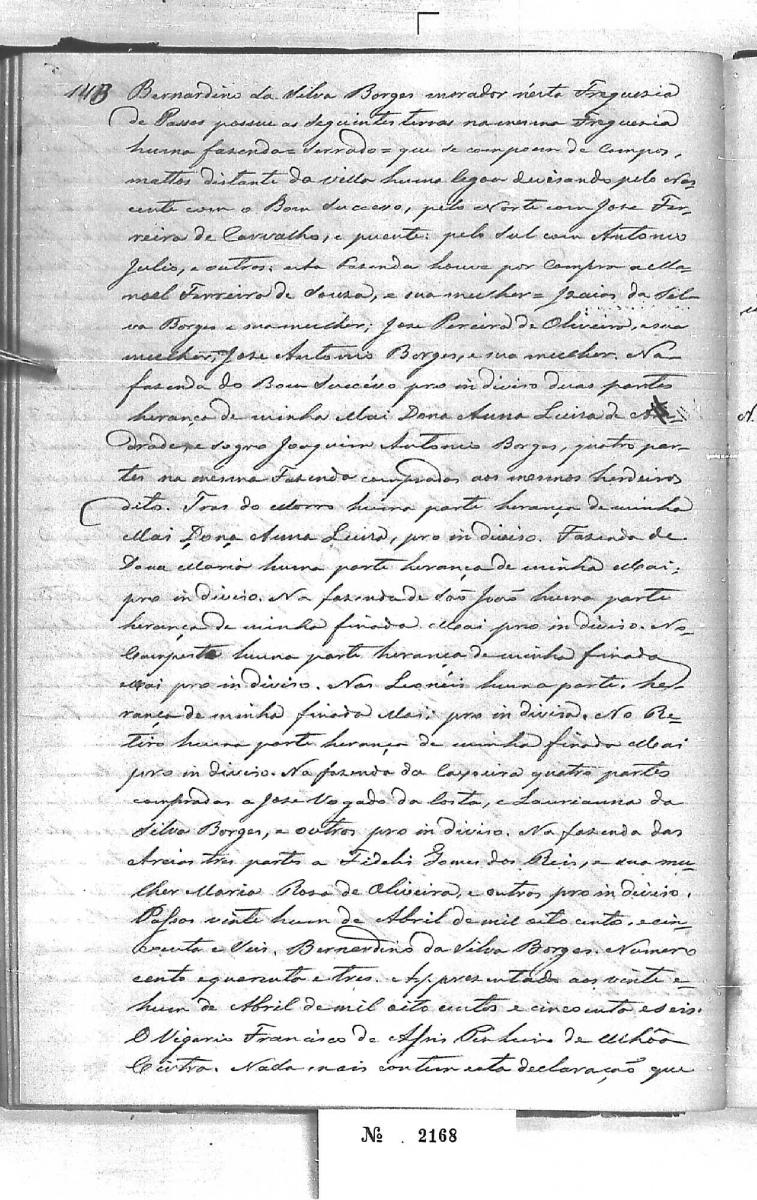 143 Bernardino da Silva Borges morador nésta Freguezia
de Passos possue as seguintes terras na mesma Freguezia
huma fazenda = Serrado = que se compoem de Campos,
mattos distante da villa huma legoa devisando pelo Nas-
cente com o Bom Successo, pelo Norte com Jose Fer-
reira de Carvalho, e puente: pelo Sul com Antonio
Julio, e outros: esta Fazenda houve por Compra a Ma-
noel Ferreira de Souza, e sua mulher = Izaias da Sil-
va Borges e sua mulher; Jose Pereira de Oliveira, e sua
mulher; Jose Antonio Borges, e sua mulher. Na
fazenda do Bom Succésso pro in diviso duas partes
herança de minha Mai Dona Anna Luiza de An-
drade, e sogro Joaquim Antonio Borges, quatro par-
tes na mesma Fazenda compradas aos mesmos herdeiros
dito. Tras do Morro huma parte herança de minha
Mai Dona Anna Luiza, pro in diviso. Fazenda de
Dona Maria huma parte herança de minha Mai,
pro in diviso. Na fazenda de São João huma parte
herança de minha finada Mai pro in diviso. No
Campestre huma parte herança de minha finada
Mai pro in diviso. Nas Leonéis huma parte he-
rança de minha finada Mai; pro in diviso. No Re-
tiro huma parte herança de minha finada Mai
pro in diviso. Na fazenda da Caxoeira quatro partes
compradas a Jose Vogado da Costa, e Laurianna da
Silva Borges, e outros pro in diviso. Na fazenda das
Areias tres partes a Fidelis Gomes dos Reis, e sua mu-
lher Maria Rosa de Oliveira, e outros pro in diviso.
Passos vinte hum de Abril de mil oito cento, e cin-
coenta e Seis. Bernardino da Silva Borges. Numero
cento e quarenta e tres. Appresentada aos vinte e
hum de Abril de mil oito centos e cincoenta e seis.
O Vigario Francisco de Assis Pinheiro de Ulhôa
Cintra. Nada mais contem esta declaração que
Nº 2168